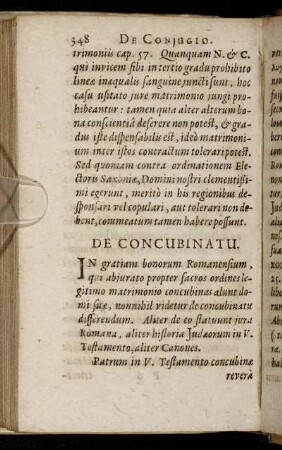 348 DE CONJUGIO.
trimoniis cap. 57. Quanquam N. & C.
qui invicem sibi in tertio gradu prohibito
lineæ inæqualis sanguine juncti sunt, hoc
casu usitato jure matrimonio jungi pro-
hibeantur: tamen quia alter alterum bo-
na conscientiâ deserere non potest, & gra-
dus iste dispensabilis est, ideò matrimoni-
um inter istos contractum tolerari potest.
Sed quoniam contra ordinationem Ele-
ctoris Saxoniæ, Domini nostri clementissi-
mi egerunt, meritò in his regionibus de-
sponsari vel copulari, aut tolerari non de-
bent, commeatum tamen habere possunt.
DE CONCUBINATU.
IN gratiam bonorum Romanensium,
qui abjurato propter sacros ordines le-
gitimo matrimonio concubinas alunt do-
mi suæ, nonnihil videtur de concubinatu
disserendum. Aliter de eo statuunt jura
Romana, aliter historia Judæorum in V.
Testamento, aliter Canones.
Patrum in V. Testamento concubinæ
reverà